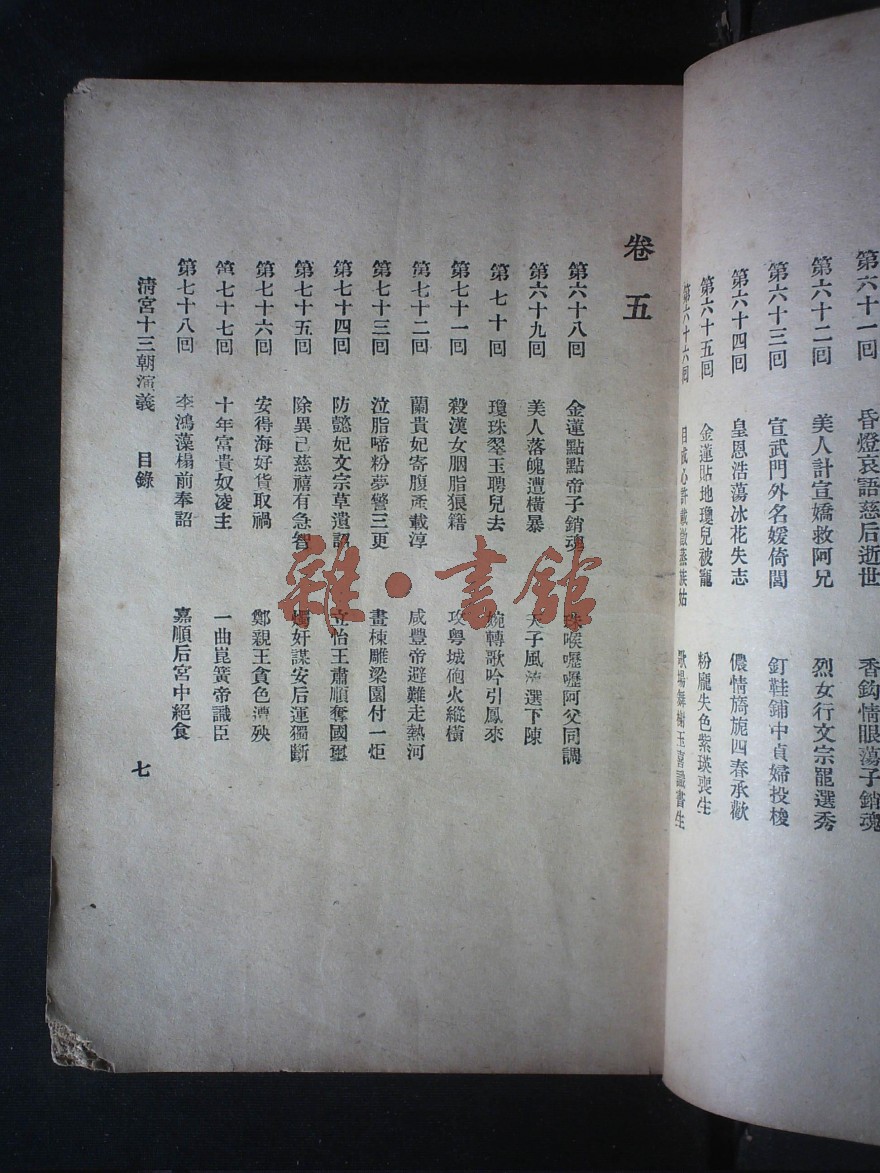 第六十一回 昏燈哀語慈后逝世 香鈎情眼蕩子銷魂
第六十二回 美人計宣嬌救阿兄 烈女行文宗罷選秀
第六十三回 宣武門外名媛倚閭 釘鞋鋪中貞婦投梭
第六十四回 皇恩浩蕩冰花失志 儂情旖旎四春承歡
第六十五回 金蓮貼地瓊兒被寵 粉龐失色紫瑛喪生
第六十六回 目成心許載澂蒸族姑 歌場舞榭玉喜識書生
卷五
第六十八回 金蓮點點帝子銷魂 珠喉嚦嚦阿父同調
第六十九回 美人落魄遭橫暴 天子風流選下陳
第七十回 瓊珠翠玉聘兒去 婉轉歌吟引鳳來
第七十一回 殺漢女胭脂狼籍 攻粵城砲火縱橫
第七十二回 蘭貴妃寄腹產載淳 咸豐帝避難走熱河
第七十三回 泣脂啼粉夢警三更 畫棟雕梁園付一炬
第七十四回 防懿妃文宗草遺詔 立怡王肅順奪國璽
第七十五回 除異己慈禧有急智 燭奸謀安后運獨斷
第七十六回 安得海好貨取禍 鄭親王貪色遭殃
第七十七回 十年富貴奴凌主 一曲崑簧帝識臣
第七十八回 李鴻藻榻前奉詔 嘉順后宮中絕食
清宮十三朝演義 目錄 七
雜·書館